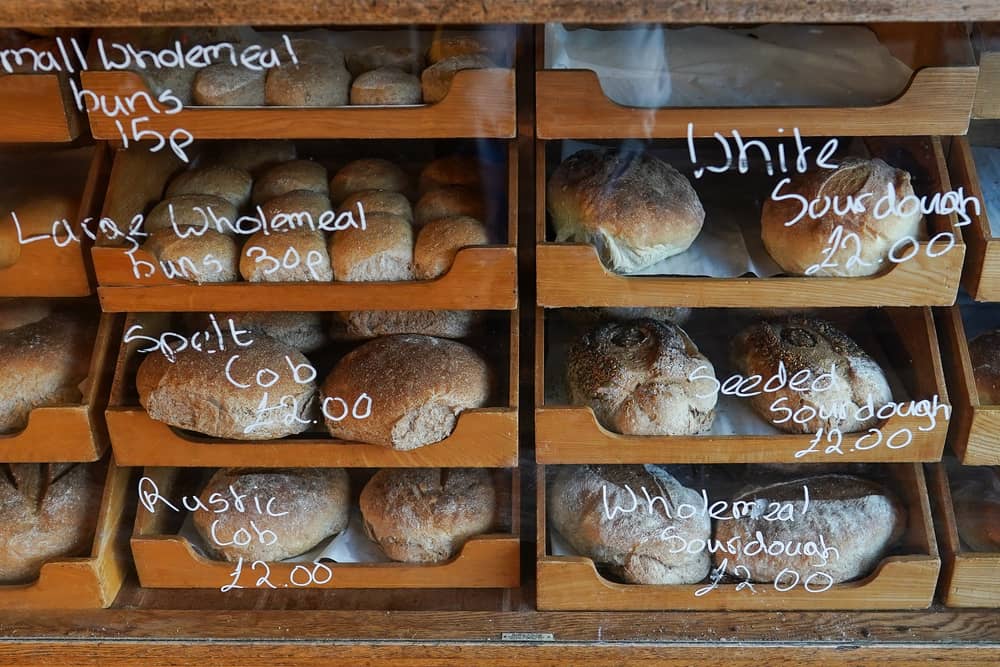 mall Wholemeal
buns
15p
Large Wholemeal
buns 30p
Spelt
Cob
£2.00
Rustic
Cob
£2.00
White
Sourdough
£2.00
Seeded
Sourdough
£2.00
Wholemeal
Sourdough
£2.00